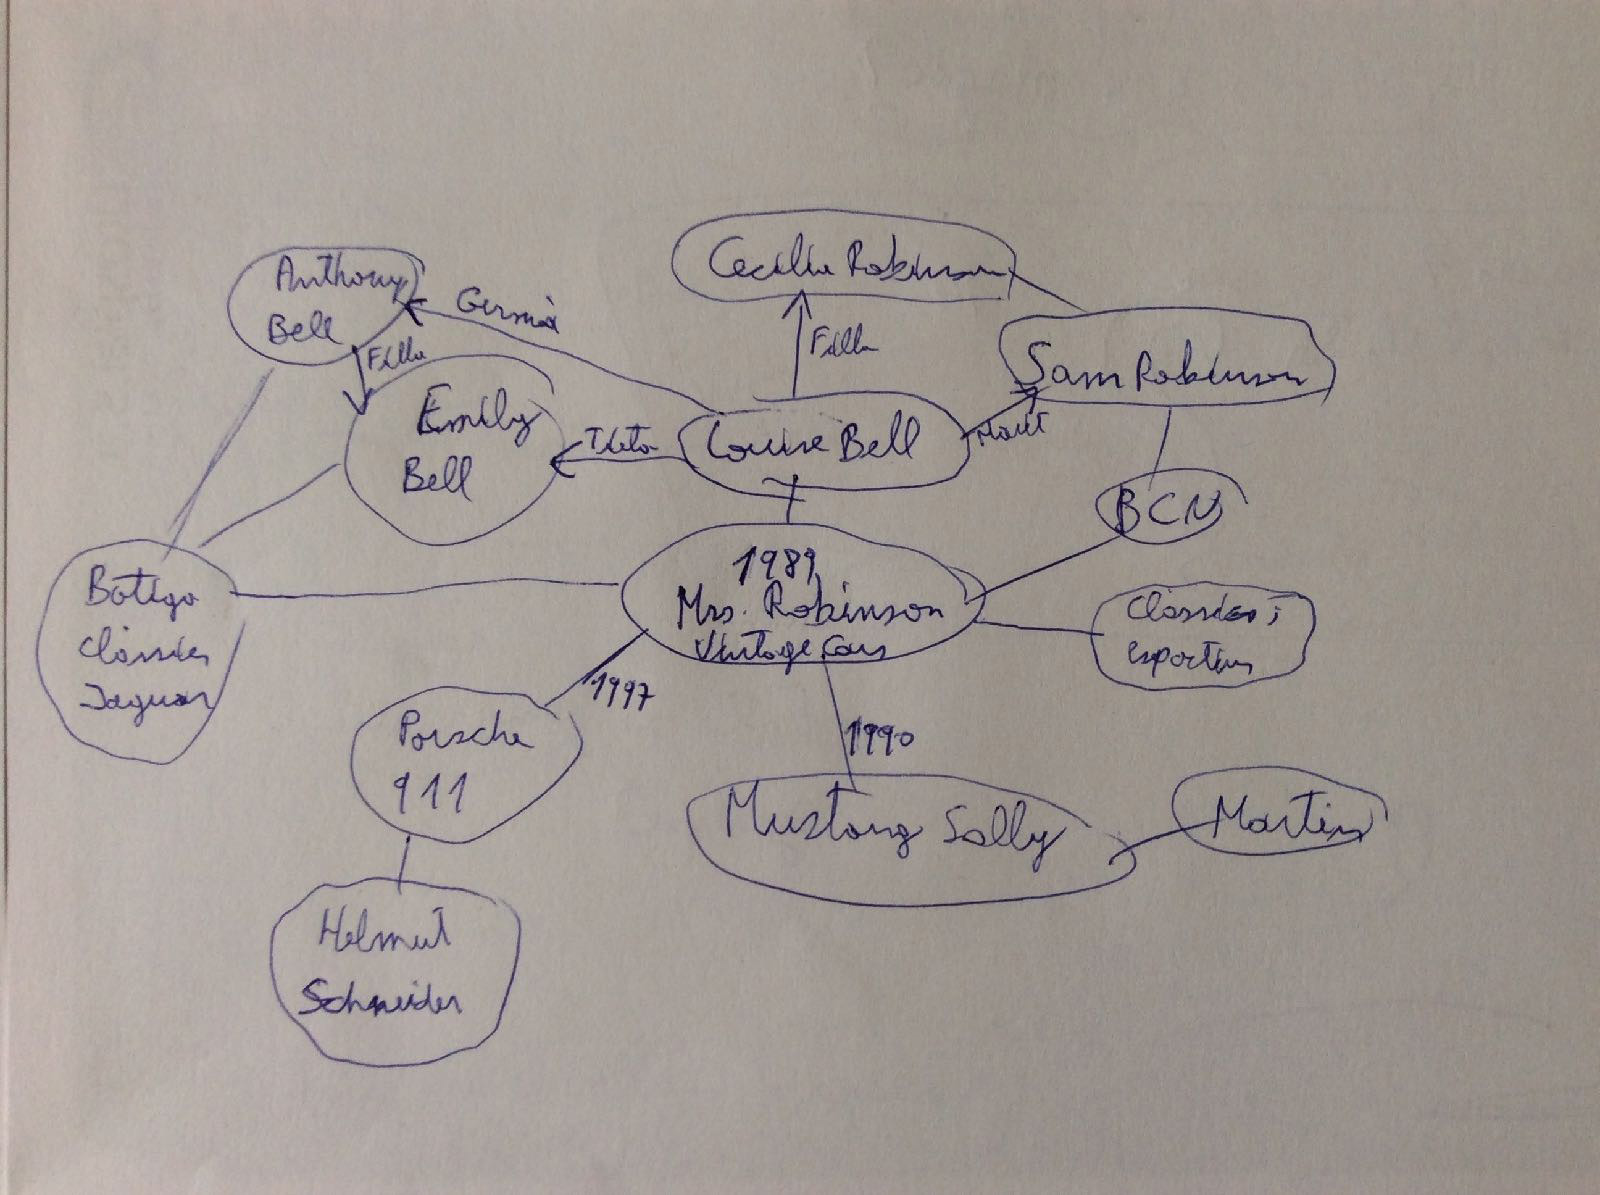 Cecilia Robinson
Anthony
Bell
Germà
Filla
Filla
Sam Robinson
Emily
Bell
Tieta
Louise Bell
Marit
BCN
1989
Mrs. Robinson
Vintage Cars
Botiga
Clàssics
Jaguar
Clàssics i
esportius
1997
Porsche
911
1990
Mustang Sally
Martin
Helmut
Schneider